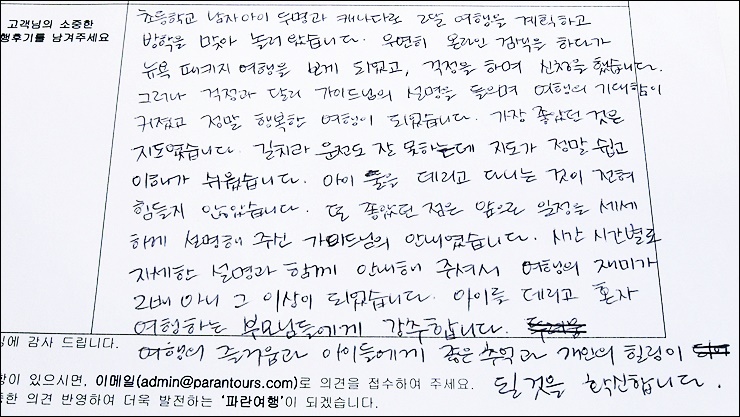 고객님의 소중한
행후기를 남겨주세요
초등학교 남자아이 두명과 캐나다로 2달 여행을 계획하고
방학을 맞아 놀러 왔습니다. 우연히 온라인 검색을 하다가
뉴욕 패키지 여행을 보게 되었고, 걱정을 하며 신청을 했습니다.
그러나 걱정과 달리 가이드님의 설명을 들으며 여행의 기대함이
커졌고 정말 행복한 여행이 되었습니다. 가장 좋았던 것은
지도였습니다. 길치라 운전도 잘 못하는데 지도가 정말 쉽고
이해가 쉬웠습니다. 아이 둘을 데리고 다니는 것이 전혀
힘들지 않았습니다. 또 좋았던 점은 앞으로 일정을 세세
하게 설명해 주신 가이드님의 안내였습니다. 시간 시간별로
자세한 설명과 함께 안내해 주셔서 여행의 재미가
2배 아니 그 이상이 되었습니다. 아이를 데리고 혼자
여행하는 부모님들에게 강추합니다.
여행의 즐거움과 아이들에게 좋은 추억과 개인의 힐링이
될것을 확신합니다.
에 감사 드립니다.
항이 있으시면, 이메일(admin@parantours.com)로 의견을 접수하여 주세요.
한 의견 반영하여 더욱 발전하는 '파란여행'이 되겠습니다.